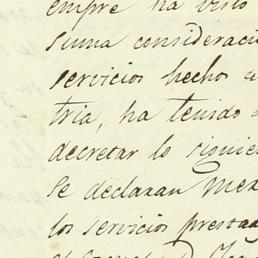 empre ha visto
suma consideraci
servicios hechos a
tria, ha tenido
decretar lo siguie
Se declaran Mex
los servicios presta